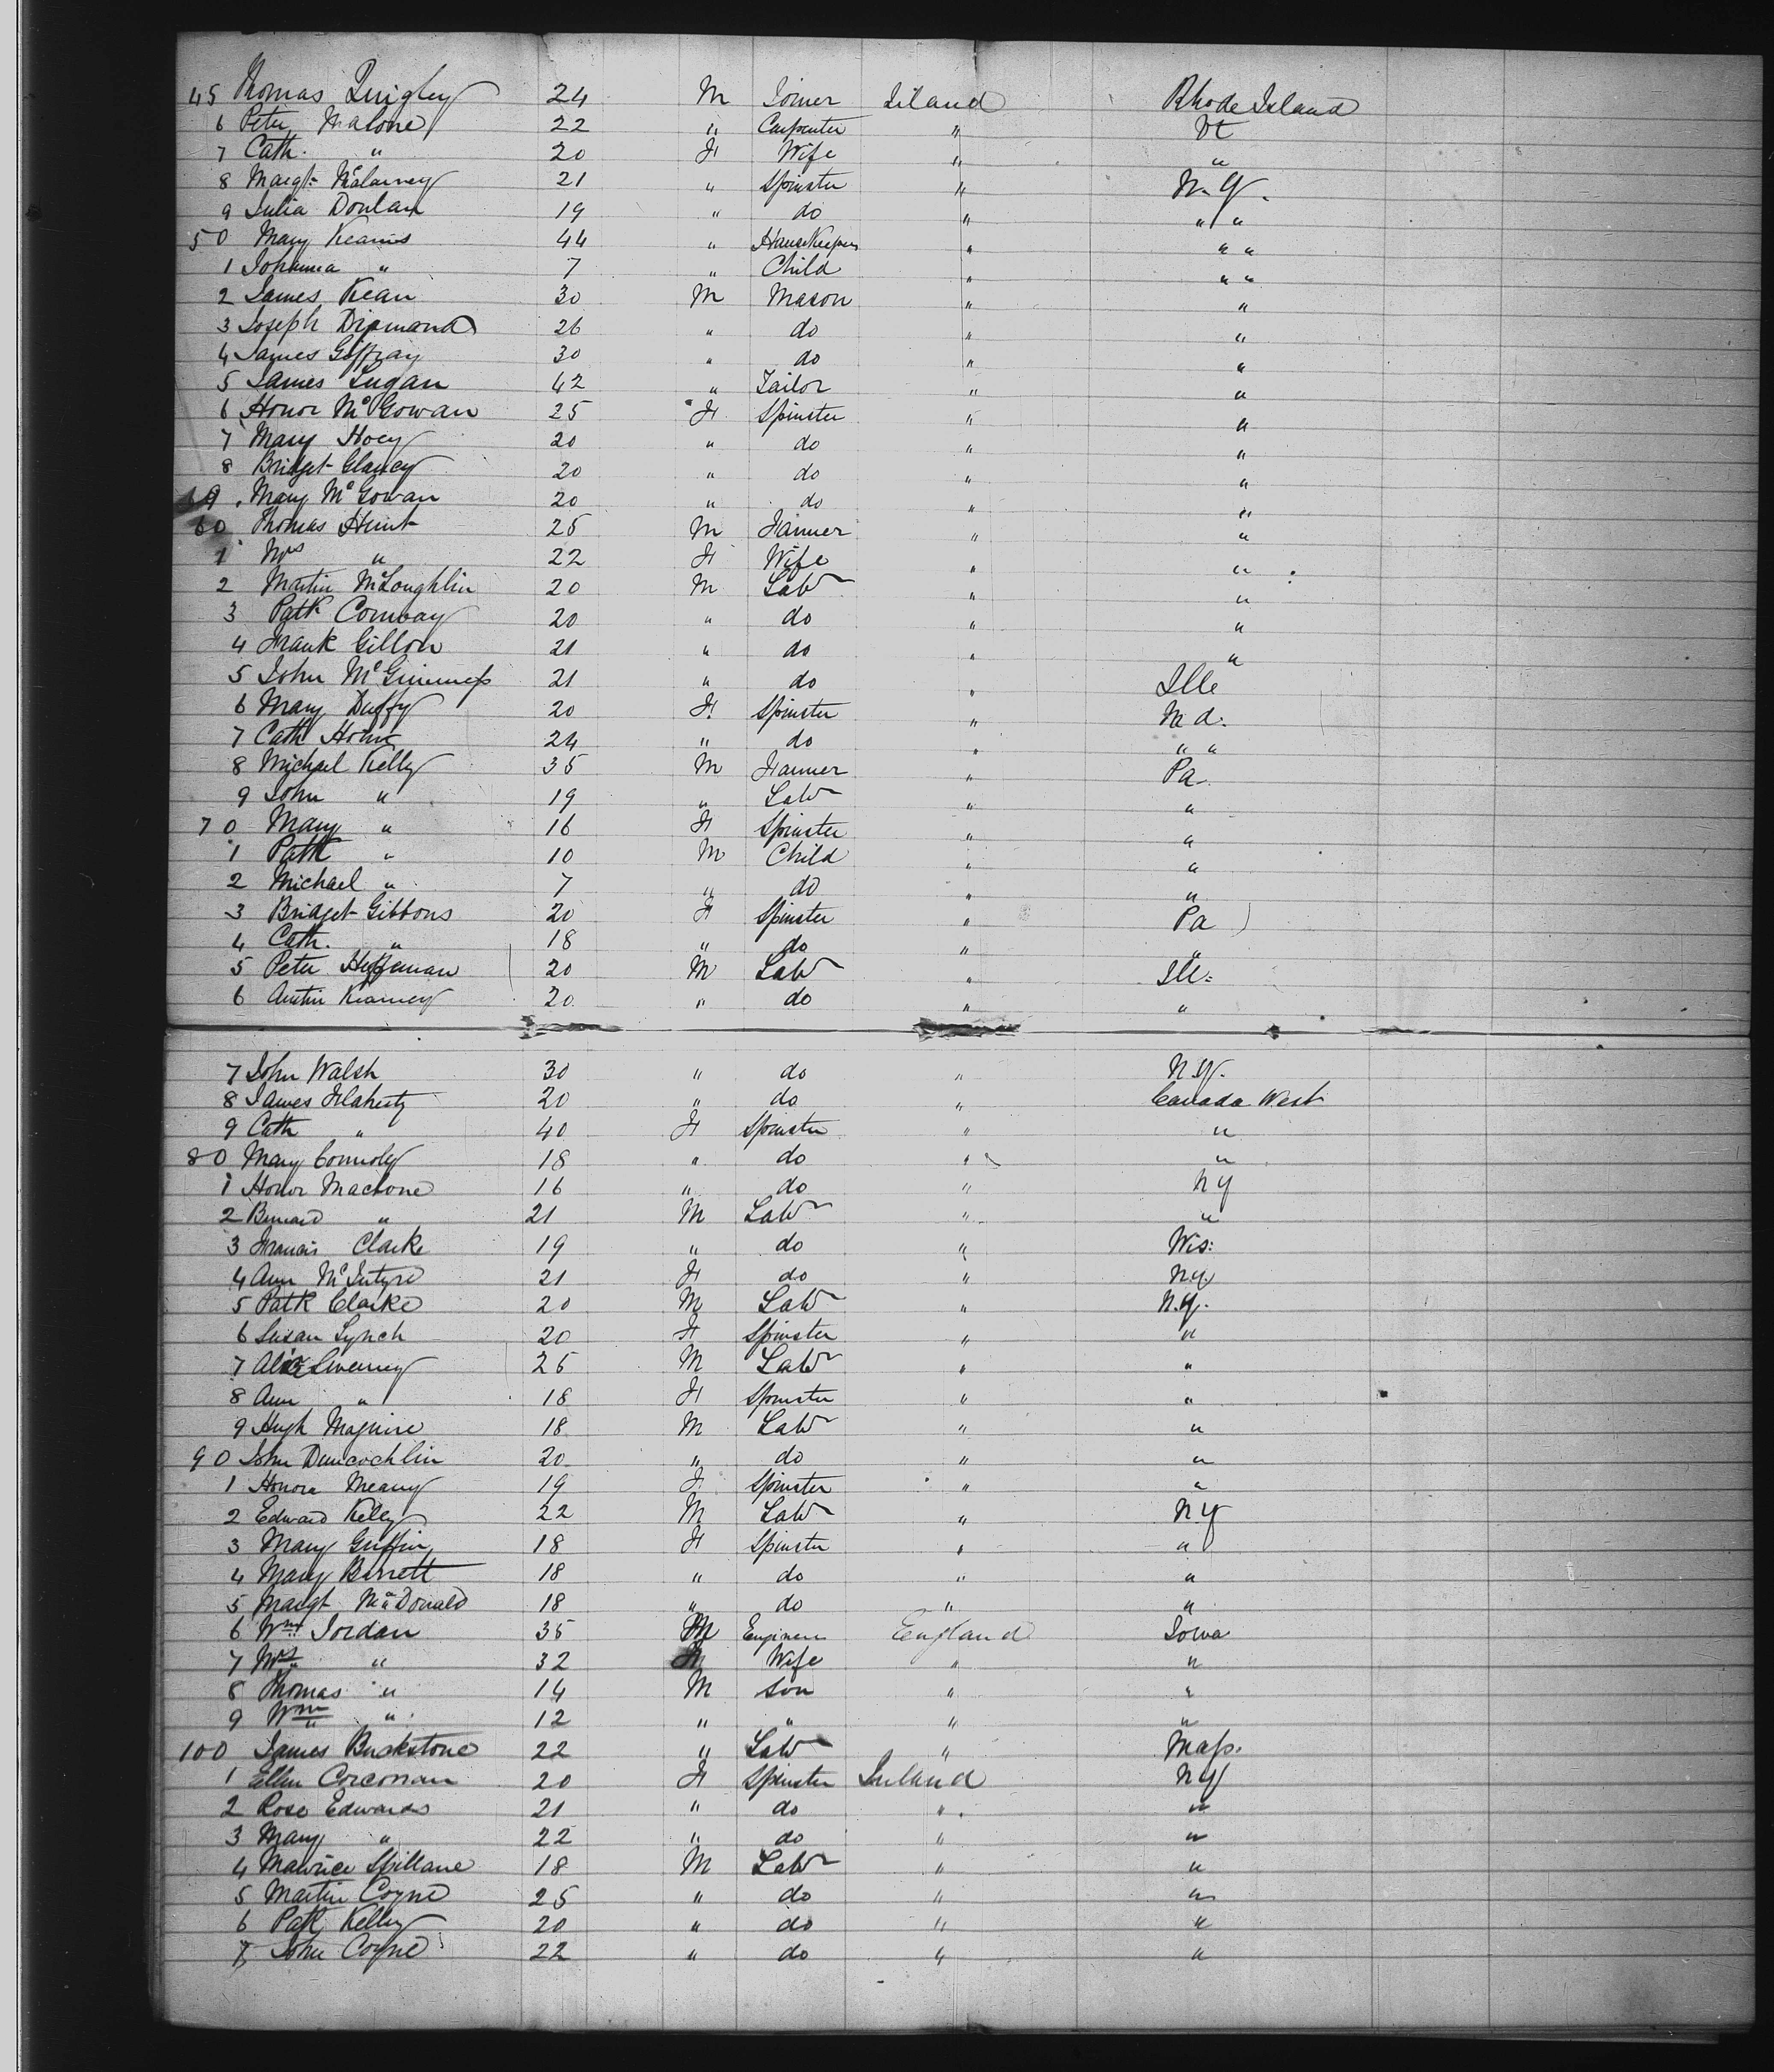 45 Thomas Quigley 24 M Joiner Ireland Rhode Island
6 Peter Malone 22 " Carpenter " Vt
7 Cath. " 20 F Wife " "
8 Margt. 21 " Spinster " N.Y.
9 Julia Donlan 19 " do " " "
50 Mary Kearns 44 " HouseKeeper " " "
1 Johanna " 7 " Child " " "
2 James Kean 30 M Mason " "
3 Joseph Dipmand 26 " do " "
4 James Geffray 30 " do " "
5 James Lugan 42 " Tailor " "
6 Honor McGowan 25 F Spinster " "
7 Mary Hoey 20 " do " "
8 Bridget Clancy 20 " do " "
59 Mary McGowan 20 " do " "
60 Thomas Hunt 25 M Farmer " "
1 Mrs " 22 F Wife " "
2 Martin McLoughlin 20 M Labr " "
3 Patk Conway 20 " do " "
4 Frank Gillon 21 " do " "
5 John McGuinness 21 " do " Ills
6 Mary Duffy 20 F. Spinster " Md.
7 Cath 24 " do " " "
8 Michael Kelly 35 M Farmer " Pa.
9 John " 19 " Labr " "
70 Mary " 16 F Spinster " "
1 Patk " 10 M Child " "
2 Michael " 7 " do " "
3 Bridget Gibbons 20 F Spinster " Pa
4 Cath. " 18 " do " "
5 Peter Heffernan 20 M Labr " Ill:
6 Austin Kearney 20 " do " "
7 John Walsh 30 " do " N.Y.
8 James Flaherty 20 " do " Canada West
9 Cath " 40 F Spinster " "
80 Mary Connoly 18 " do " "
1 Honor Mactone 16 " do " NY
2 Bernard " 21 M Labr " "
3 Francis Clarke 19 " do " Wis:
4 Ann McIntyre 21 F do " N.Y.
5 Patk Clarke 20 M Labr " N.Y.
6 Susan Lynch 20 F Spinster " "
7 Sweeney 25 M Labr " "
8 Ann " 18 F Spinster " "
9 Hugh Maguire 18 M Labr " "
90 John Duncochlin 20 " do " "
1 Honora Meany 19 F Spinster " "
2 Edward Kelly 22 M Labr " NY
3 Mary Griffin 18 F Spinster " "
4 Mary Barrett 18 " do " "
5 Margt McDonald 18 " do " "
6 Wm Jordan 35 M Engineer England Iowa
7 Mrs " 32 F Wife " "
8 Thomas " 14 M Son " "
9 Wm " 12 " " " "
100 James Buckstone 22 " Labr " Mass.
1 Ellen Corcoran 20 F Spinster Ireland NY
2 Rose Edwards 21 " do " "
3 Mary " 22 " do " "
4 Maurice Spillane 18 M Labr " "
5 Martin Coyne 25 " do " "
6 Patk Kelly 20 " do " "
7 John Coyne 22 " do " "